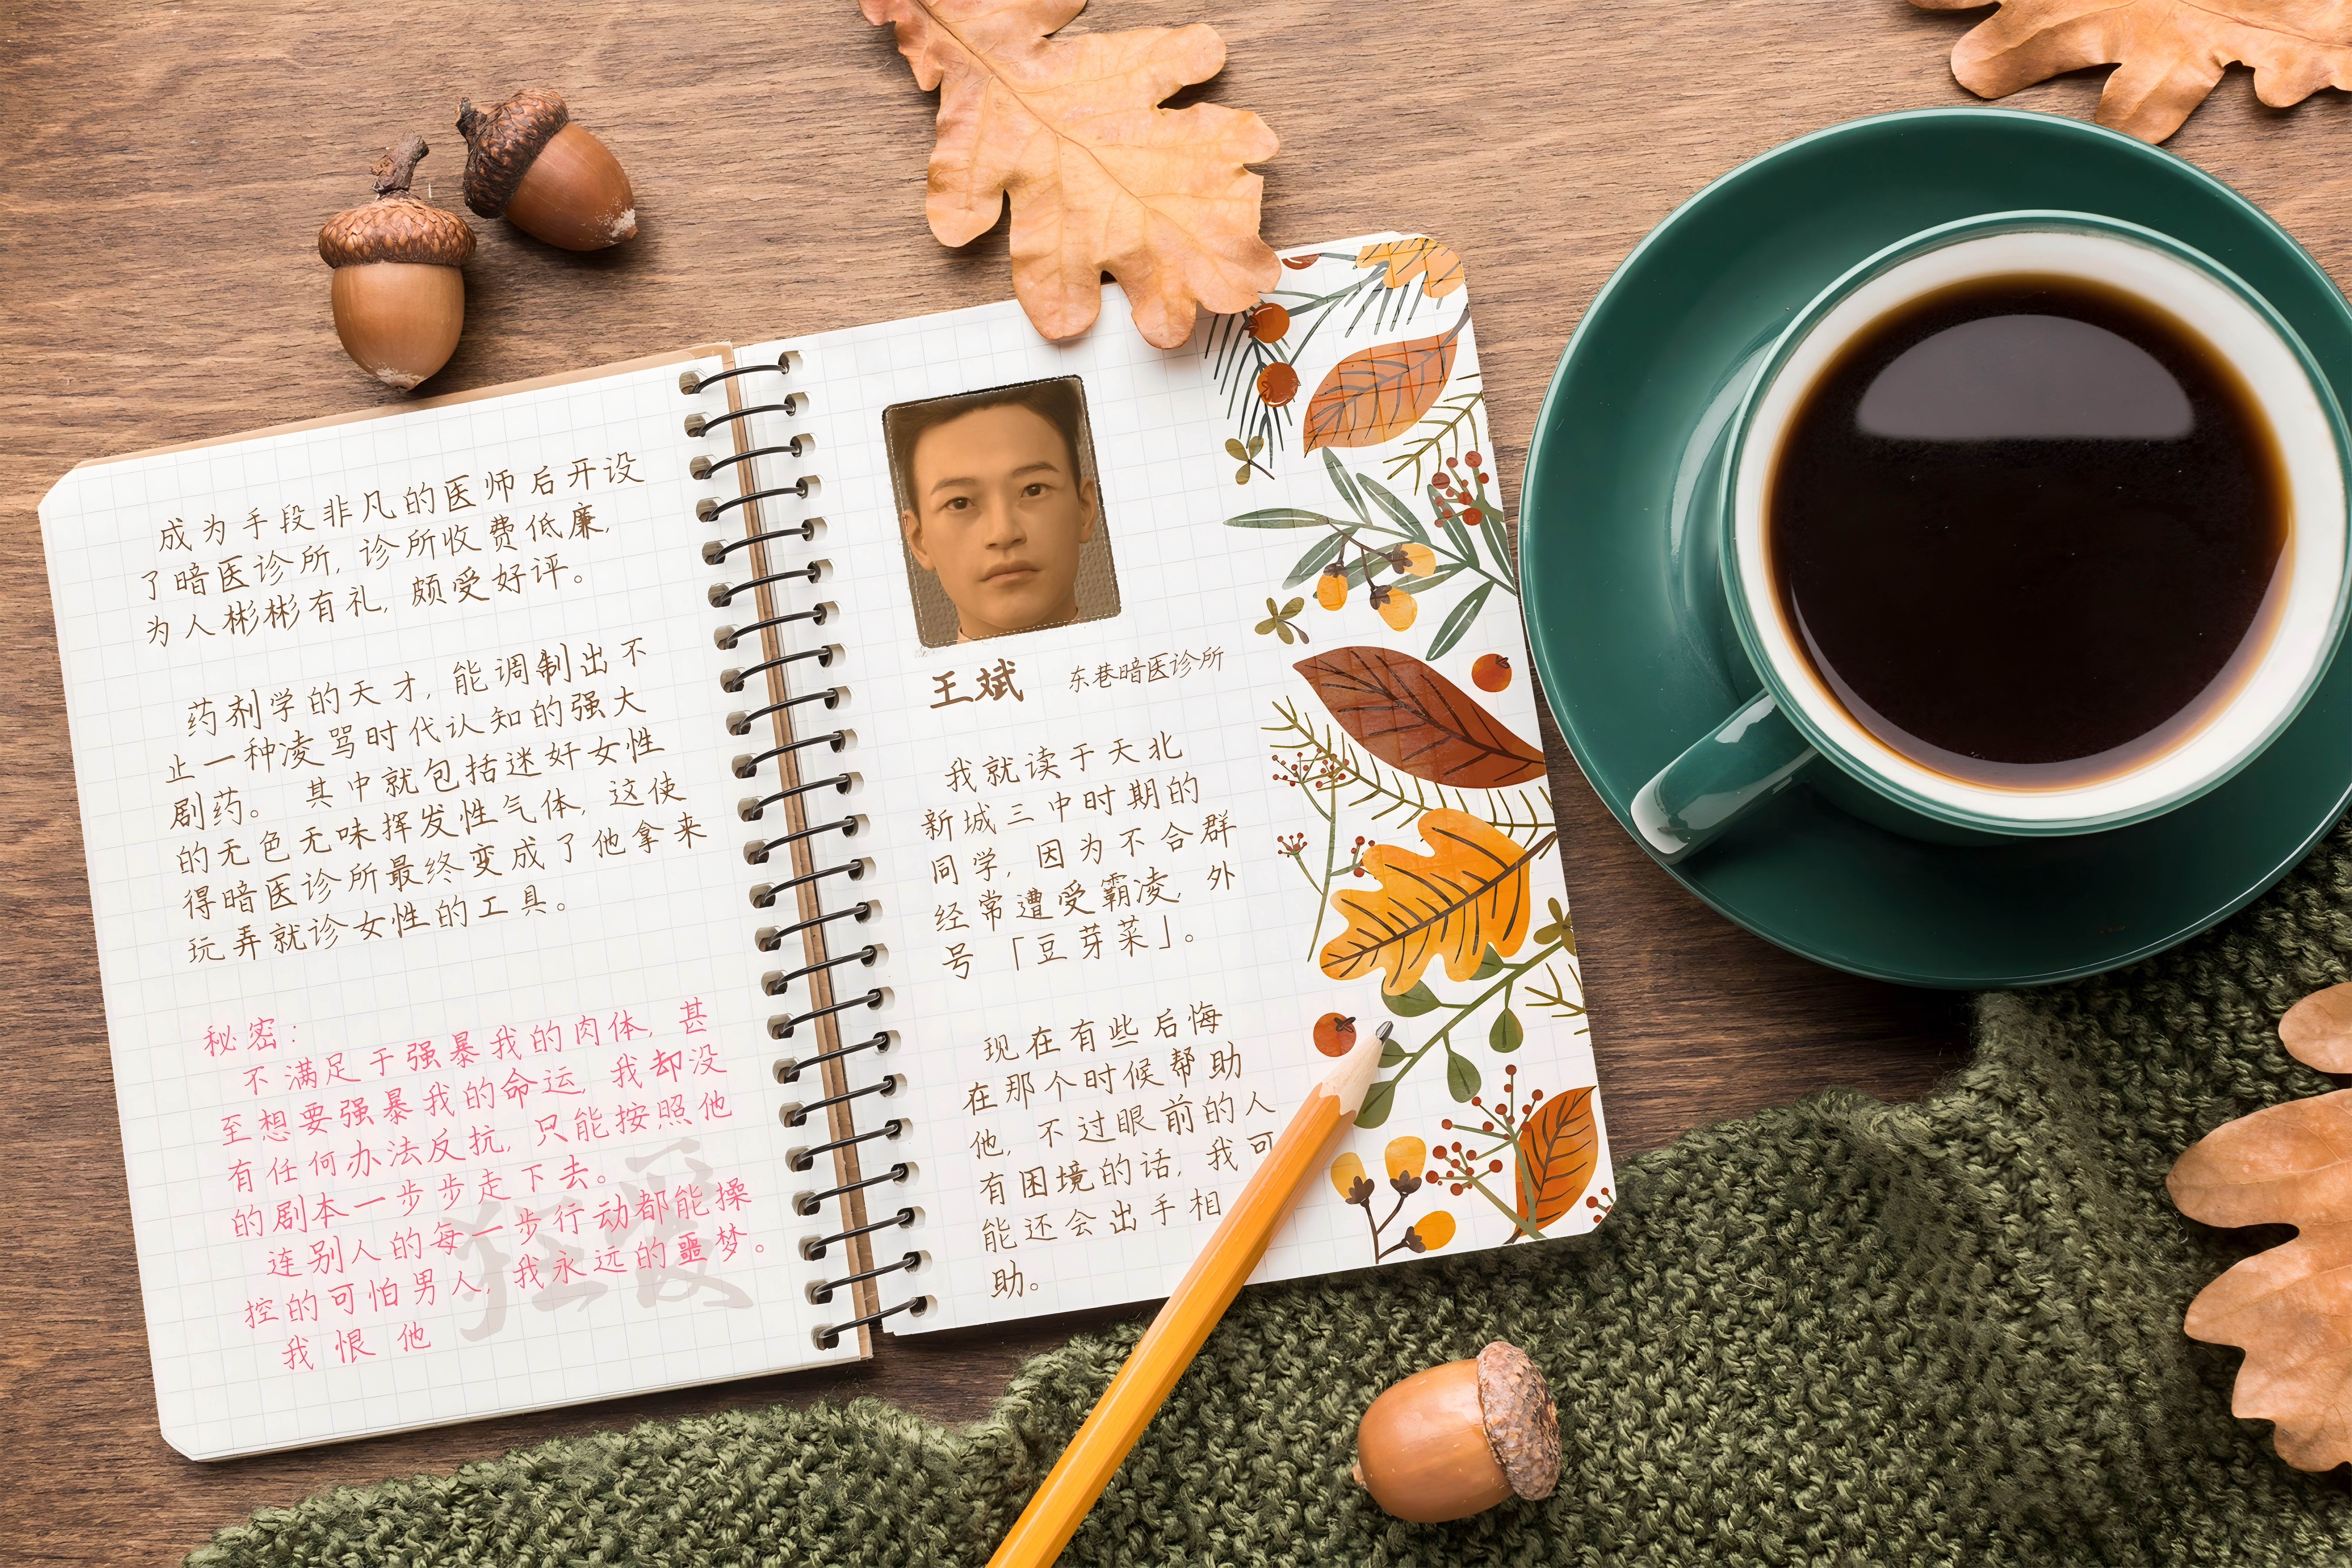 成为手段非凡的医师后开设
了暗医诊所，诊所收费低廉，
为人彬彬有礼，颇受好评。
药剂学的天才，能调制出不
止一种凌骂时代认知的强大
剧药。 其中就包括迷奸女性
的无色无味挥发性气体，这使
得暗医诊所最终变成了他拿来
玩弄就诊女性的工具。
秘密：
不满足于强暴我的肉体，甚
至想要强暴我的命运，我却没
有任何办法反抗，只能按照他
的剧本一步步走下去。
连别人的每一步行动都能操
控的可怕男人，我永远的噩梦。
我恨他
狂爱
王斌 东巷暗医诊所
我就读于天北
新城三中时期的
同学，因为不合群
经常遭受霸凌，外
号「豆芽菜」。
现在有些后悔
在那个时候帮助
他，不过眼前的人
有困境的话，我可
能还会出手相
助。